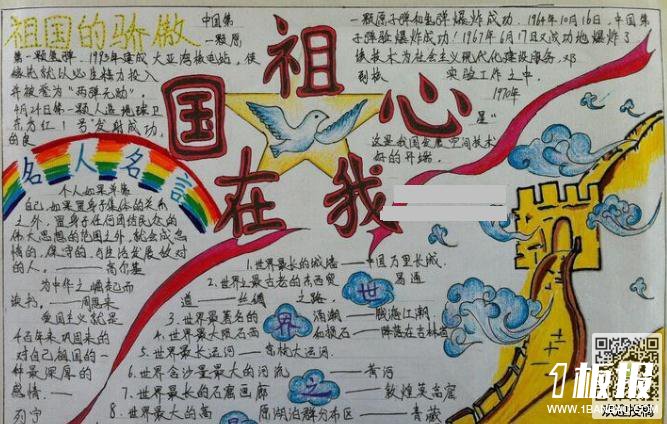 祖国的骄傲
中国第
一颗原
第一颗氢弹,1993年建成大亚湾核电站,使
并被誉为“两弹元勋”。
4月24日第一颗人造地球卫
东方红1号”发射成功,
的良
一颗原子弹和氢弹爆炸成功。1964年10月16日,中国第
子弹验爆炸成功!1967年6月17日又成功地爆炸了
核技术为社会主义现代化建设服务,邓
实验工作之中,
1970年
星“
这是我国发展空间技术
好的开端。
祖
国心
在我
名人名言
个人如果单靠
自己,如果置身于集体的关系
之外,置身于任何团结民众的
伟大思想的范围之外,就会成怠
惰的,保守的,与生活发展敌对
的人。——高尔基
为中华之崛起而
读书。——周恩来
爱国主义就是
千百年来巩固起来的
对自己祖国的一
种最深厚的
感情。——
列宁
世界之
1.世界最长的城墙——中国万里长城.
2.世界之最古老的东西贸易通
道——丝绸之路.
3.世界最著名的涌潮——钱塘江潮.
4.世界最大陨石雨和陨石——降落在吉林省
5.世界最长运河——京杭大运河.
6.世界含沙量最大的河流——黄河
7.世界最长的石窟画廊——敦煌莫高窟
8.世界最大的高原湖泊群分布区——青藏
1板报
WWW.1BANBAO.COM
欢迎投稿